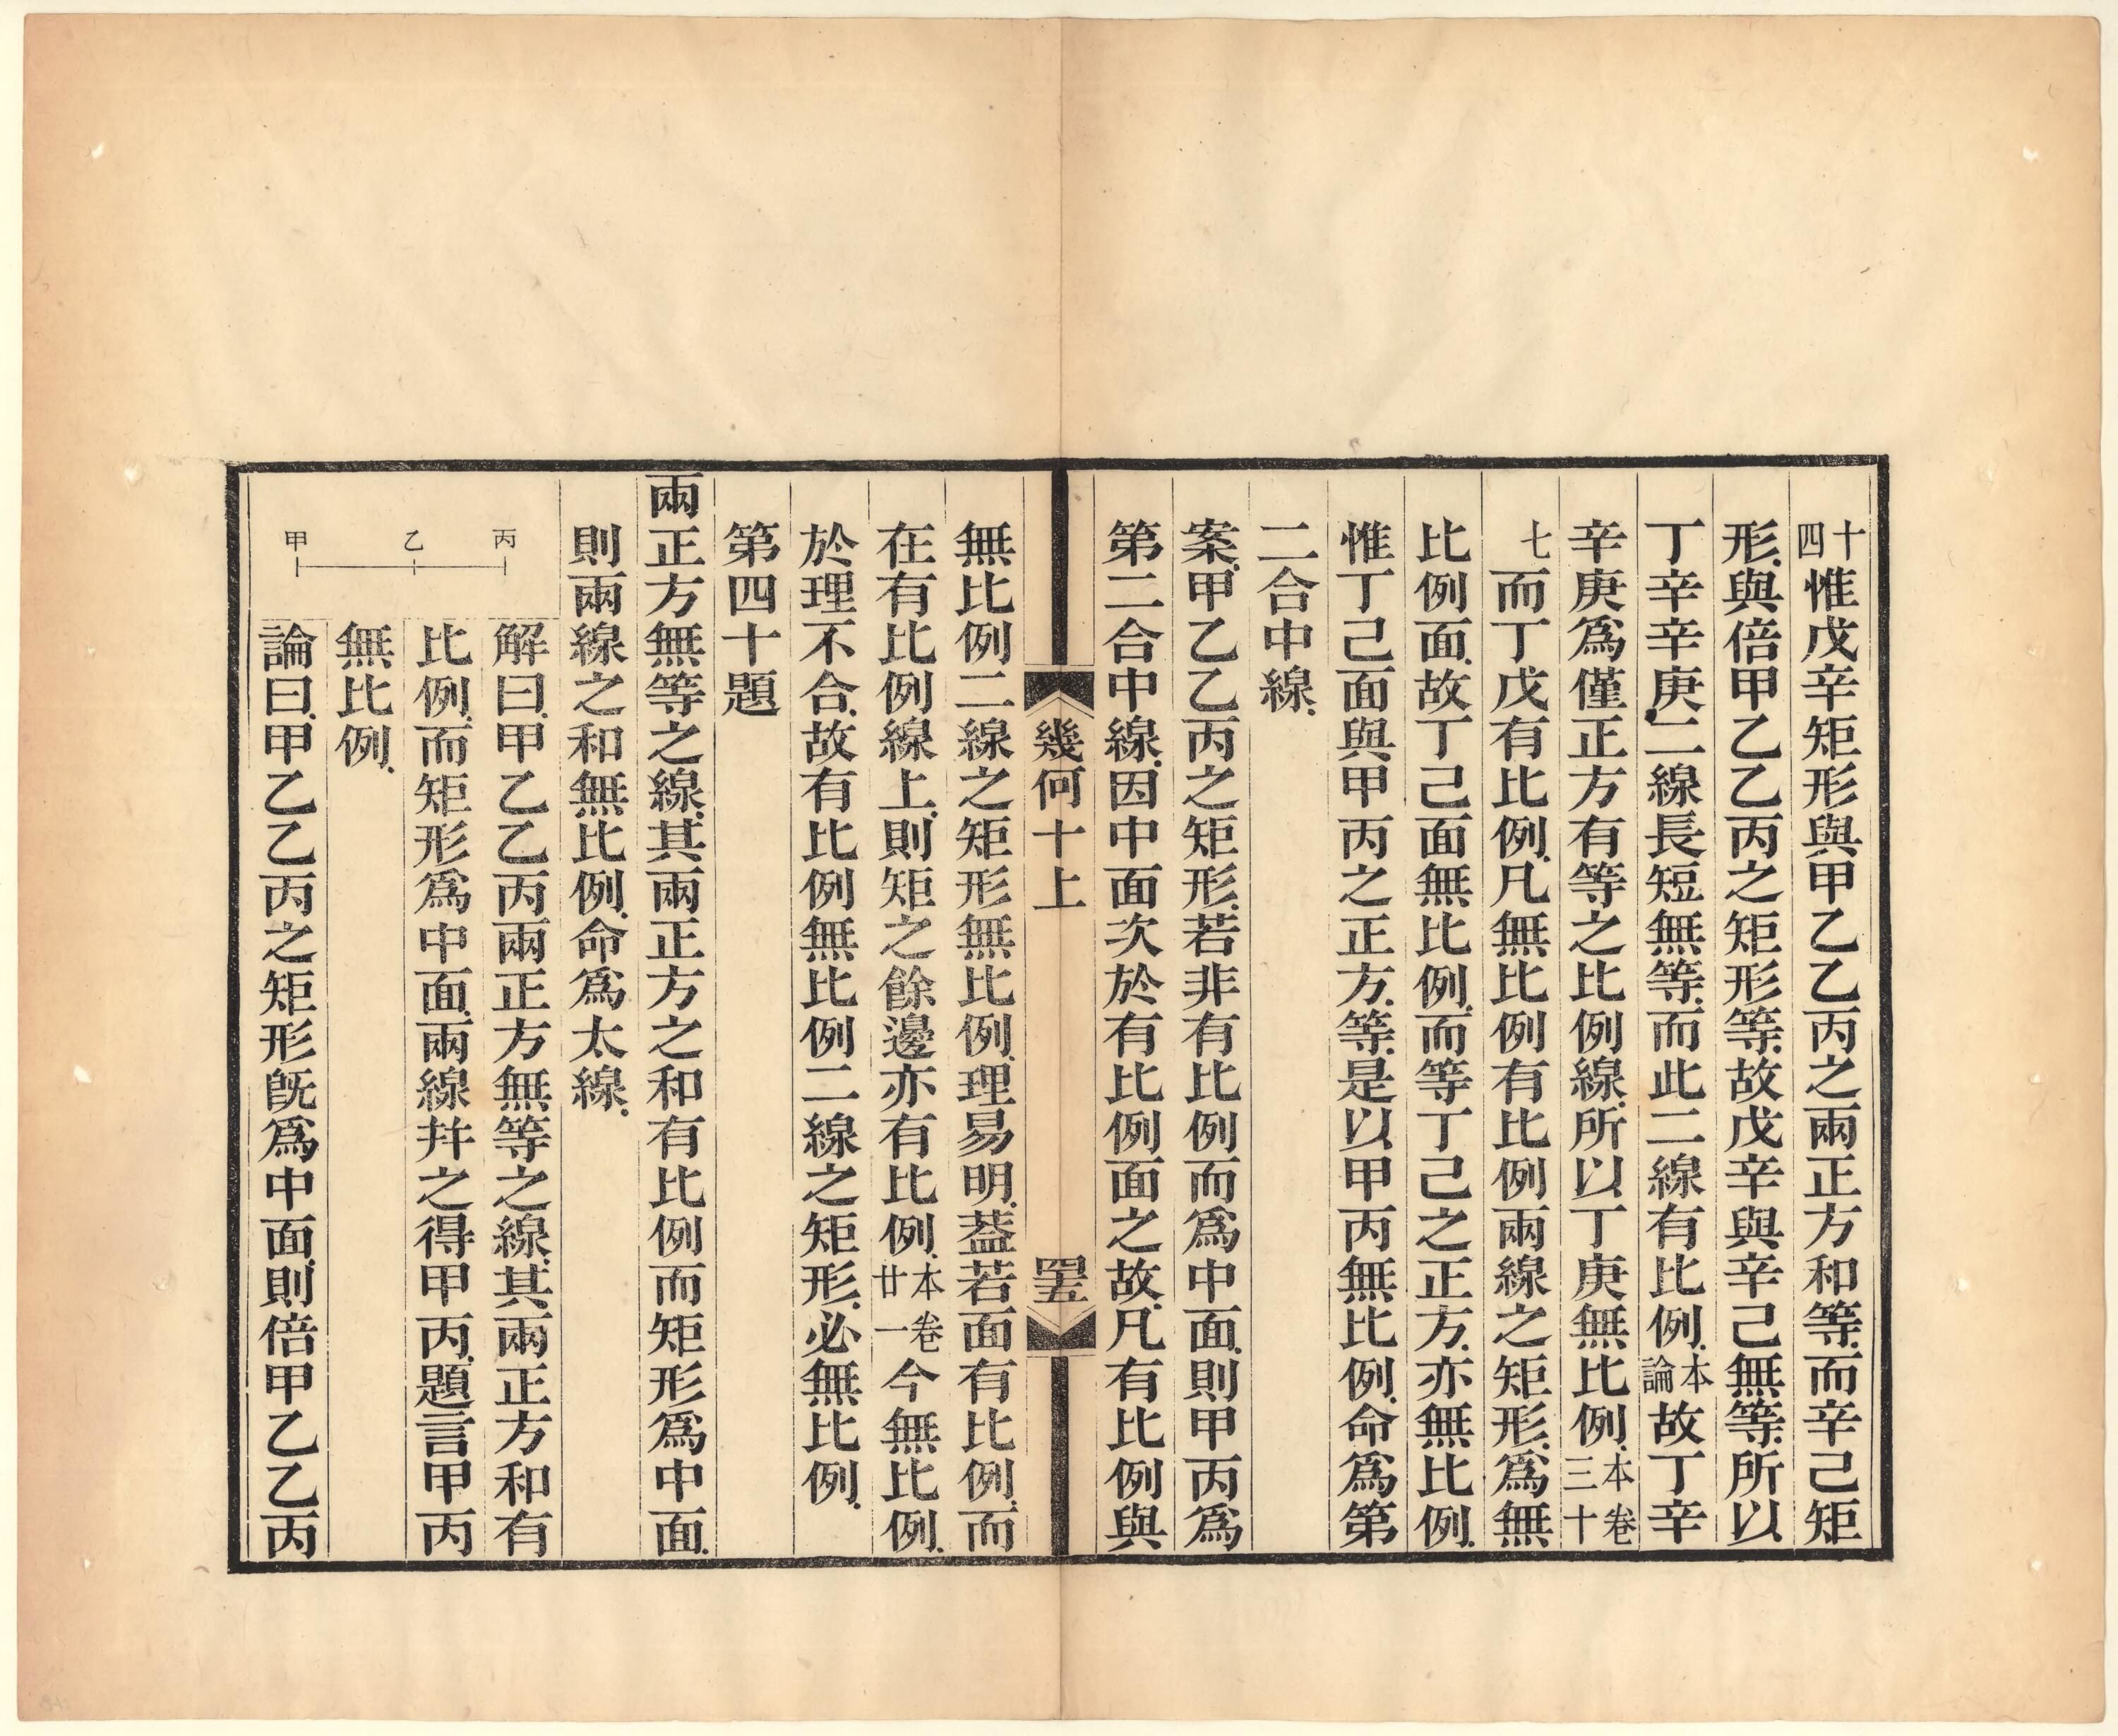 十四惟戊辛矩形與甲乙乙丙之兩正方和等而辛己矩
形與倍甲乙乙丙之矩形等故戊辛與辛己無等所以
丁辛辛庚二線長短無等而此二線有比例本論故丁辛
辛庚爲僅正方有等之比例線所以丁庚無比例本卷三十
七而丁戊有比例凡無比例有比例兩線之矩形爲無
比例面故丁己面無比例而等丁己之正方亦無比例
惟丁己面與甲丙之正方等是以甲丙無比例命爲第
二合中線
案甲乙乙丙之矩形若非有比例而爲中面則甲丙爲
第二合中線因中面次於有比例面之故凡有比例與
幾何十上
罢五
無比例二線之矩形無比例理易明葢若面有比例而
在有比例線上則矩之餘邊亦有比例本卷廿一今無比例
於理不合故有比例無比例二線之矩形必無比例
第四十題
兩正方無等之線其兩正方之和有比例而矩形爲中面
則兩線之和無比例命爲太線
丙
乙
甲
解曰甲乙乙丙兩正方無等之線其兩正方和有
比例而矩形爲中面兩線幷之得甲丙題言甲丙
無比例
論曰甲乙乙丙之矩形旣爲中面則倍甲乙乙丙